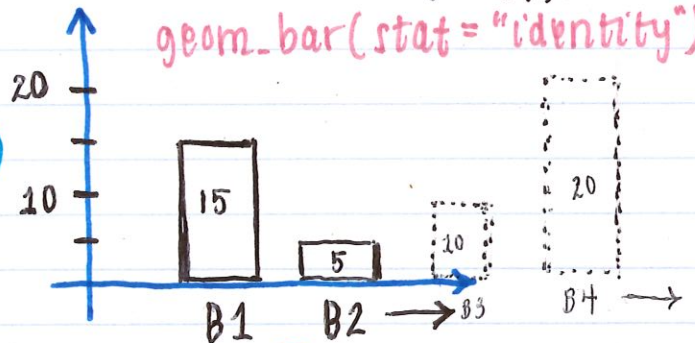 geom_bar(stat="identity")
20
10
15
5
10
20
B1 B2 B3 B4